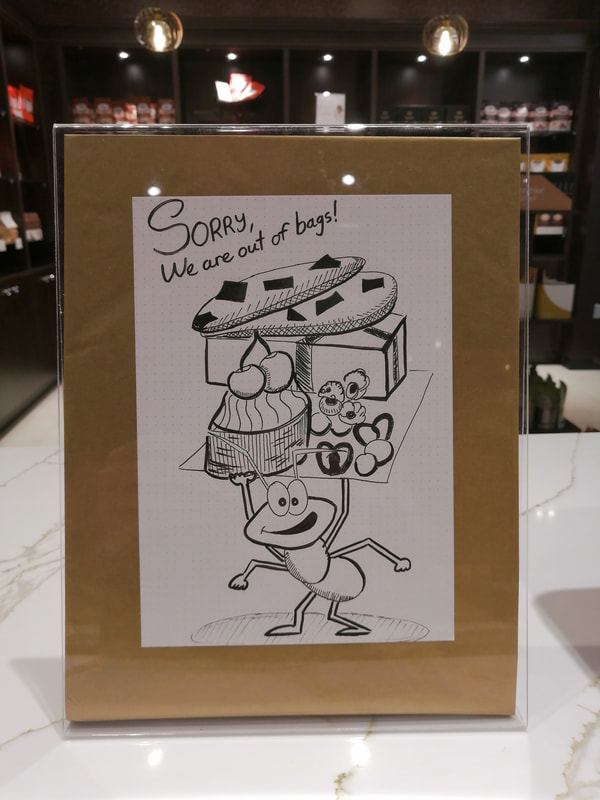 Sorry,
We are out of bags!